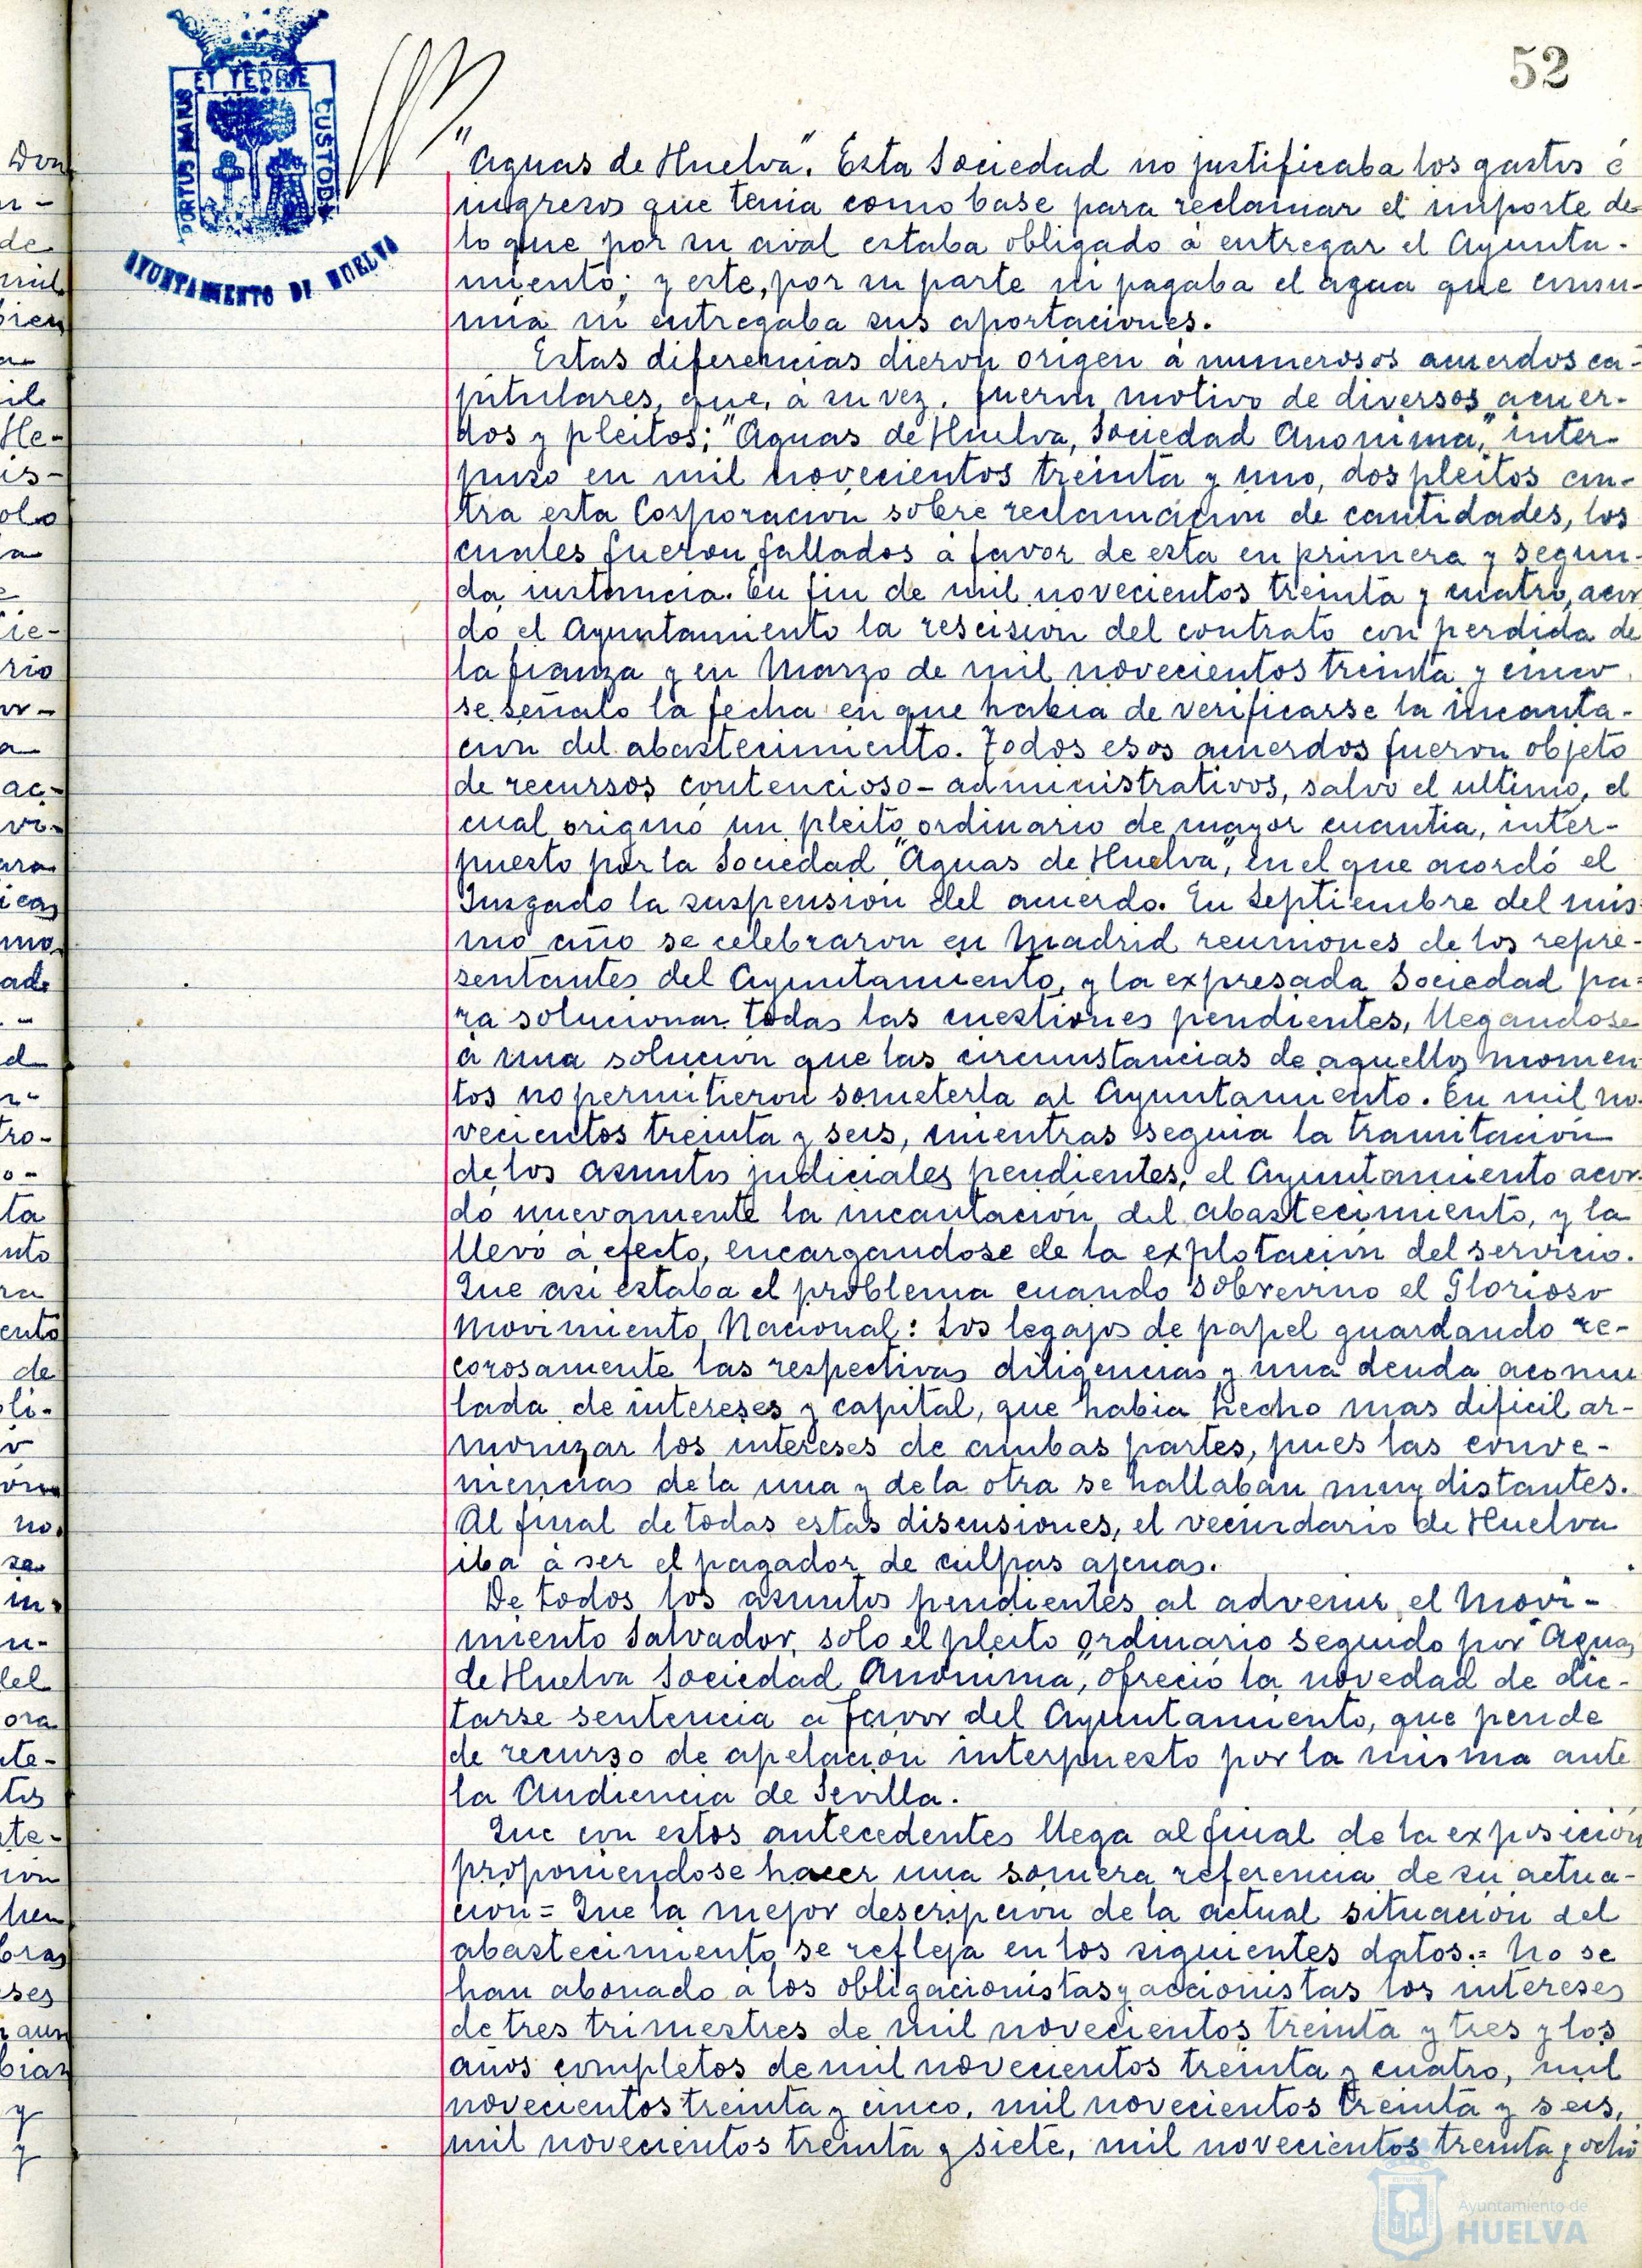 52
ET TERRE
PORTUS MARIS
CUSTODIA
AYUNTAMIENTO DE HUELVA
"Aguas de Huelva". Esta Sociedad no justificaba los gastos é
ingresos que tenia como base para reclamar el importe de
lo que por su aval estaba obligado á entregar el Ayunta-
miento; y este, por su parte ni pagaba el agua que consu-
mia ni entregaba sus aportaciones.
Estas diferencias dieron origen á numerosos acuerdos ca-
pitulares, que, á su vez, fueron motivo de diversos acuer-
dos y pleitos; "Aguas de Huelva, Sociedad Anonima," inter-
puso en mil novecientos treinta y uno, dos pleitos con-
tra esta Corporacion sobre reclamacion de cantidades, los
cuales fueron fallados á favor de esta en primera y segun-
da instancia. En fin de mil novecientos treinta y cuatro, acor
do el Ayuntamiento la rescision del contrato con perdida de
la fianza y en Marzo de mil novecientos treinta y cinco
se señalo la fecha en que habia de verificarse la incauta-
cion del abastecimiento. Todos esos acuerdos fueron objeto
de recursos contencioso-administrativos, salvo el ultimo, el
cual origino un pleito ordinario de mayor cuantia, inter-
puesto por la Sociedad "Aguas de Huelva", en el que acordó el
Juzgado la suspension del acuerdo. En Septiembre del mis-
mo año se celebraron en Madrid reuniones de los repre-
sentantes del Ayuntamiento, y la expresada Sociedad pa-
ra solucionar todas las cuestiones pendientes, llegandose
á una solución que las circunstancias de aquellos momen
tos no permitieron someterla al Ayuntamiento. En mil no-
vecientos treinta y seis, mientras seguia la tramitacion
de los asuntos judiciales pendientes, el Ayuntamiento acor-
do nuevamente la incautacion del abastecimiento, y la
llevó á efecto, encargandose de la explotacion del servicio.
Que asi estaba el problema cuando sobrevino el Glorioso
Movimiento Nacional: Los legajos de papel guardando re-
corosamente las respectivas diligencias y una deuda acomu
lada de intereses y capital, que habia hecho mas dificil ar-
monizar los intereses de ambas partes, pues las conve-
niencias de la una y de la otra se hallaban muy distantes.
Al final de todas estas discusiones, el vecindario de Huelva
iba á ser el pagador de culpas ajenas.
De todos los asuntos pendientes al advenir el Movi-
miento Salvador, solo el pleito ordinario seguido por "Aguas
de Huelva Sociedad Anonima", ofreció la novedad de dic-
tarse sentencia a favor del Ayuntamiento, que pende
de recurso de apelacion interpuesto por la misma ante
la Audiencia de Sevilla.
Que con estos antecedentes llega al final de la exposición
proponiendose hacer una somera referencia de su actua-
cion = Que la mejor descripcion de la actual situacion del
abastecimiento se refleja en los siguientes datos:= No se
han abonado á los obligacionistas y accionistas los intereses
de tres trimestres de mil novecientos treinta y tres y los
años completos de mil novecientos treinta y cuatro, mil
novecientos treinta y cinco, mil novecientos treinta y seis,
mil novecientos treinta y siete, mil novecientos treinta y ocho
Ayuntamiento de
HUELVA